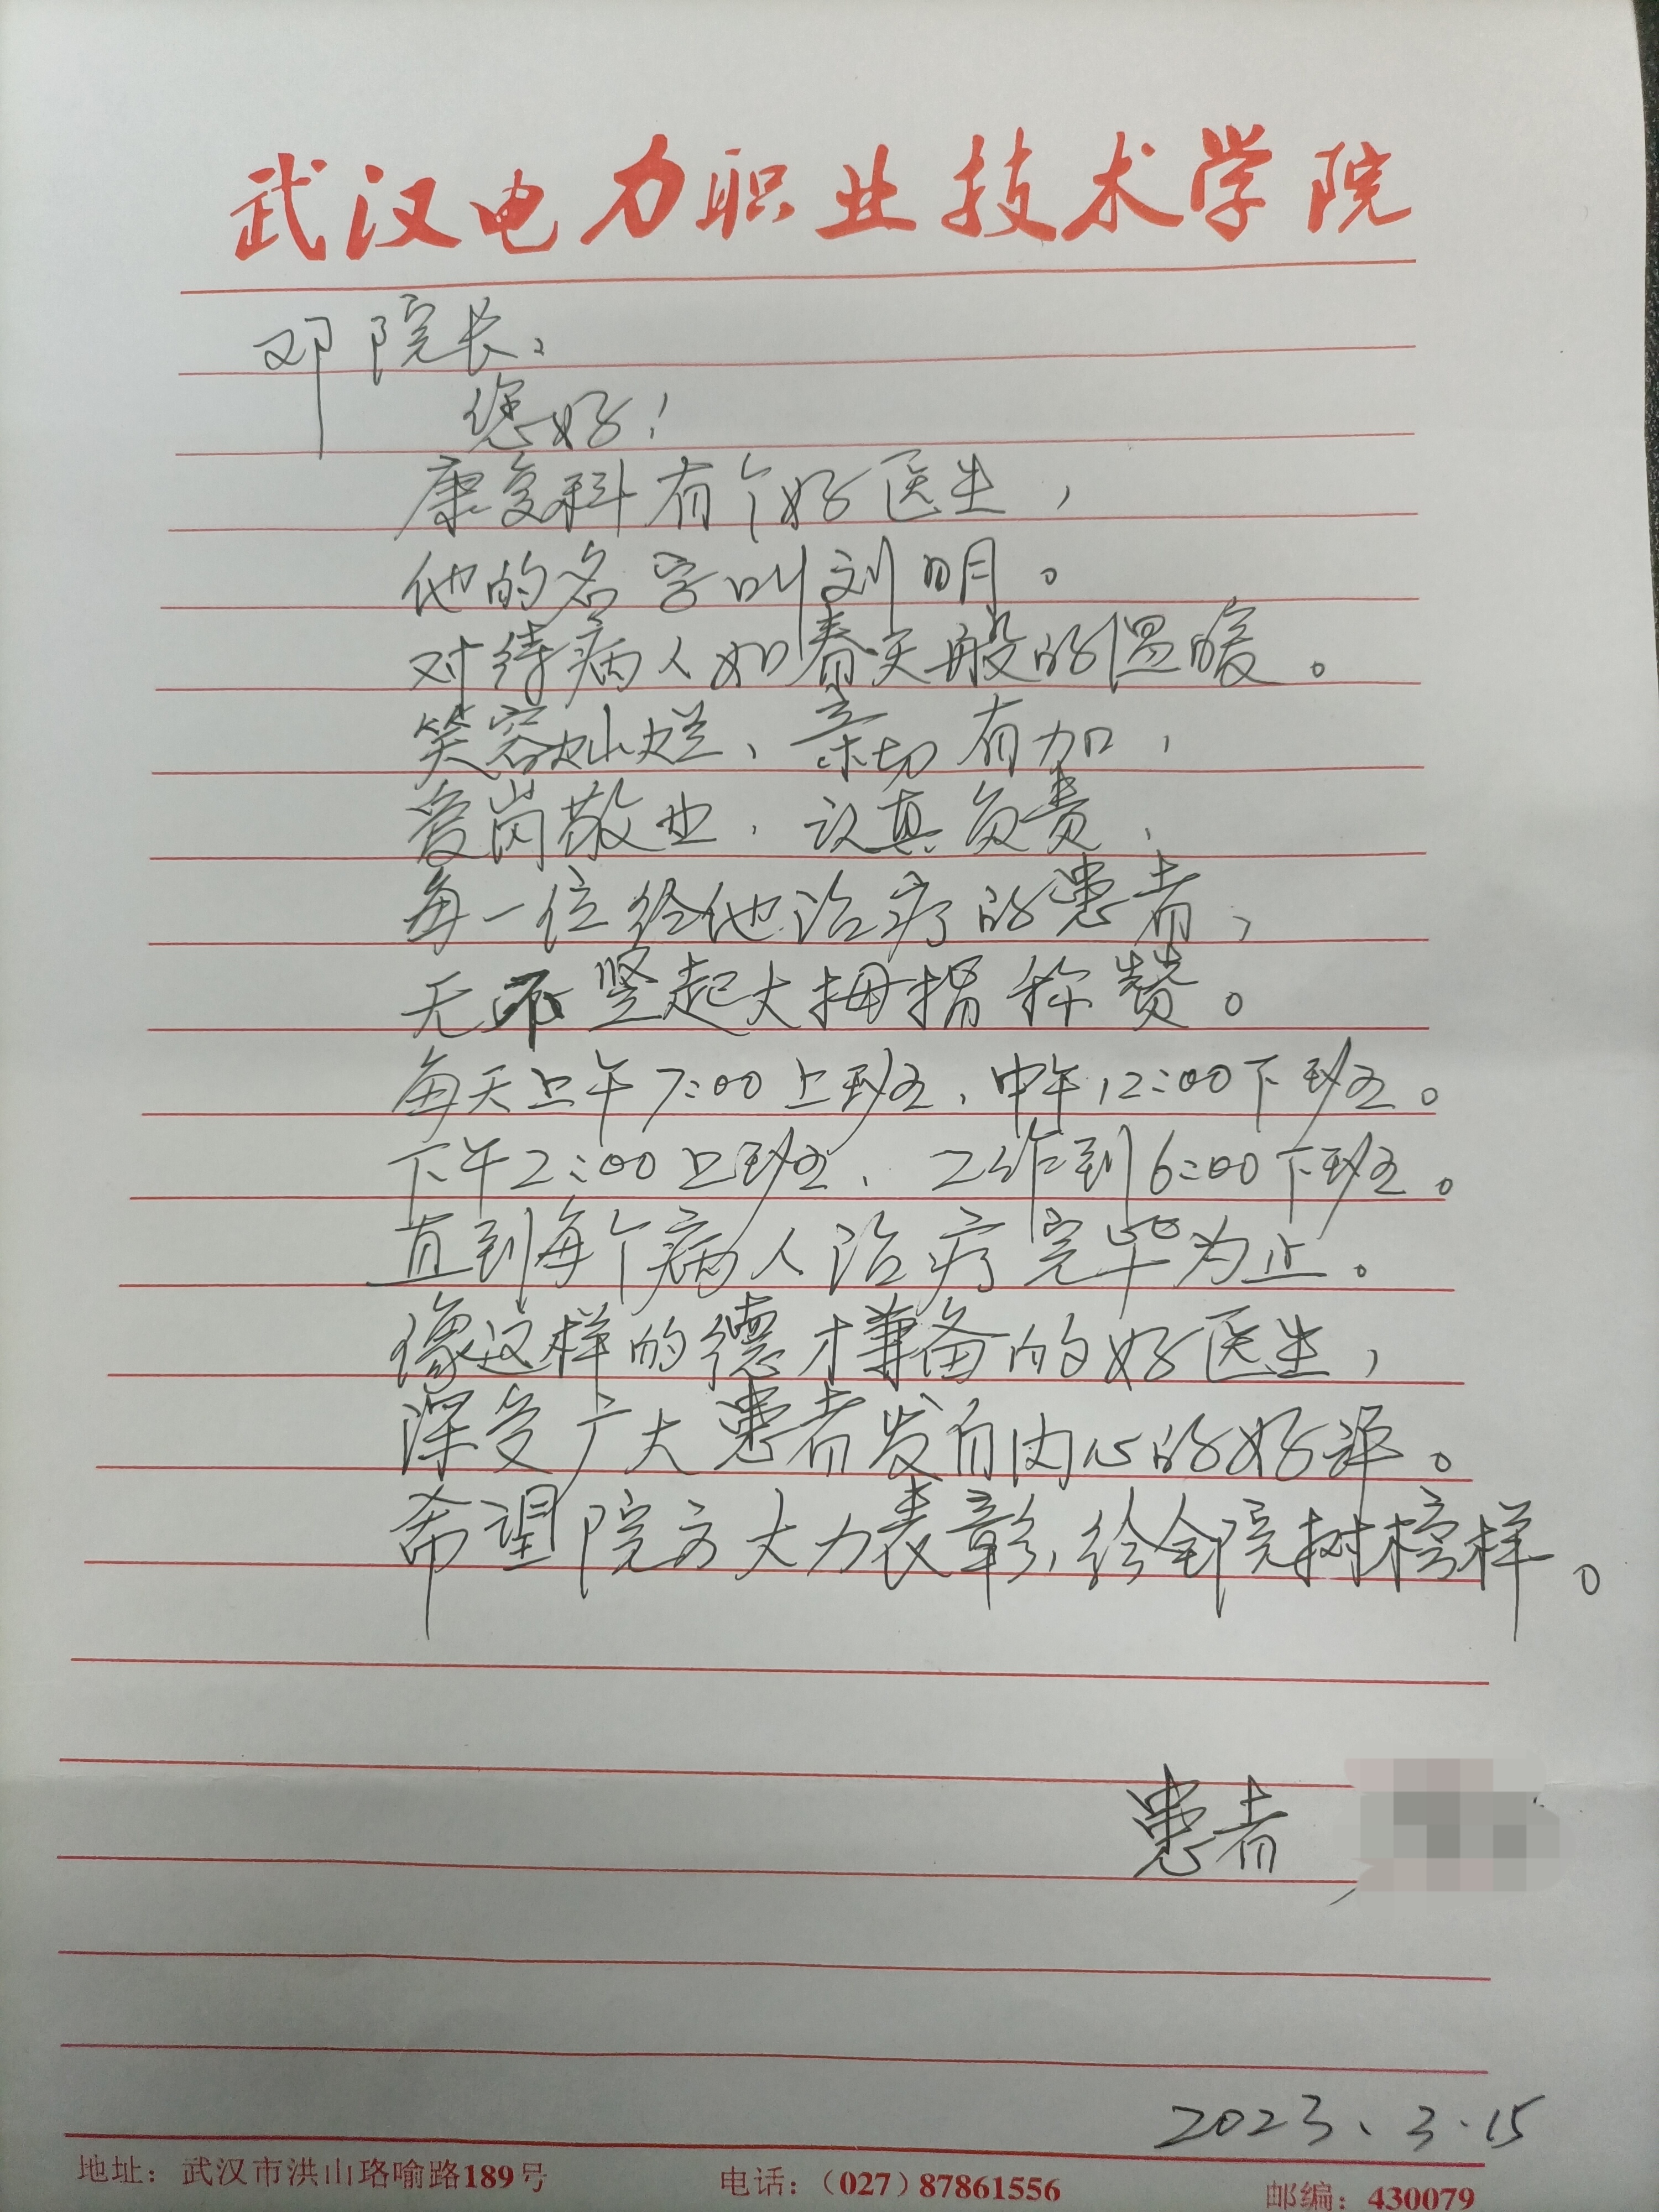 武汉电力职业技术学院
邓院长：
您好！
康复科有个好医生，
他的名字叫刘明。
对待病人如春天般的温暖。
笑容灿烂、亲切有加，
爱岗敬业、认真负责，
每一位经他治疗的患者，
无不竖起大拇指称赞。
每天上午7:00上班、中午12:00下班。
下午2:00上班、工作到6:00下班。
直到每个病人治疗完毕为止。
像这样的德才兼备的好医生，
深受广大患者发自内心的好评。
希望院方大力表彰、给全院树榜样。
患者
2023.3.15
地址：武汉市洪山珞喻路189号 电话：（027）87861556 邮编：430079